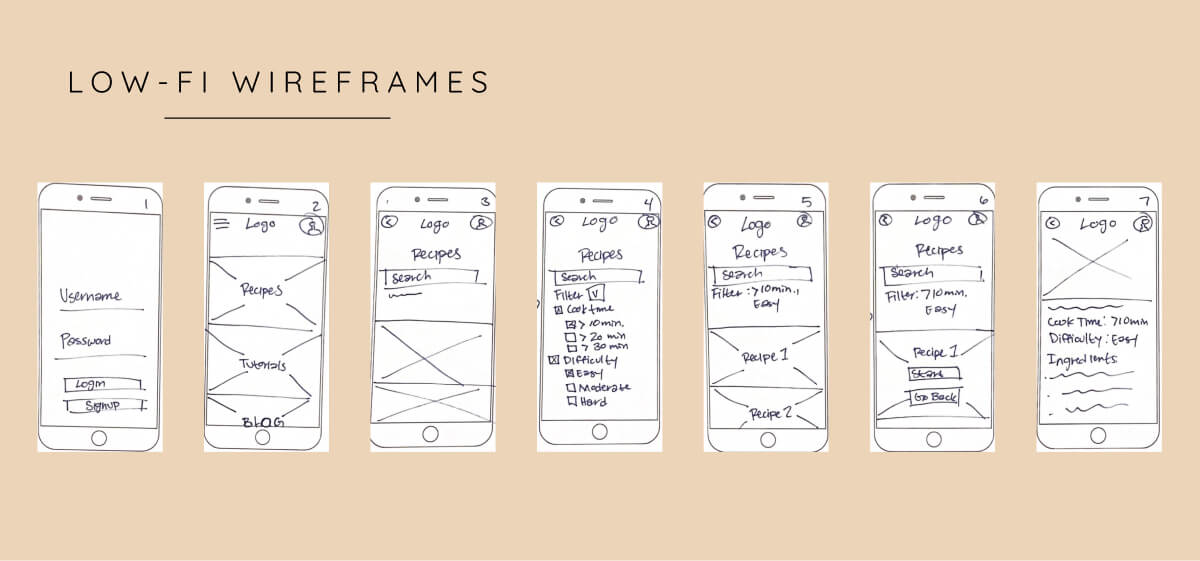 LOW-FI WIREFRAMES
1
Username
Password
Login
Signup
2
Logo
Recipes
Tutorials
BLOG
3
Logo
Recipes
Search
4
Logo
Recipes
Search
Filter V
Cook time
> 10min.
> 20 min
> 30 min
Difficulty
Easy
Moderate
Hard
5
Logo
Recipes
Search
Filter: >10min.,
Easy
Recipe 1
Recipe 2
6
Logo
Recipes
Search
Filter: >10min,
Easy
Recipe 1
Start
Go Back
7
Logo
Cook Time: >10min
Difficulty: Easy
Ingredients